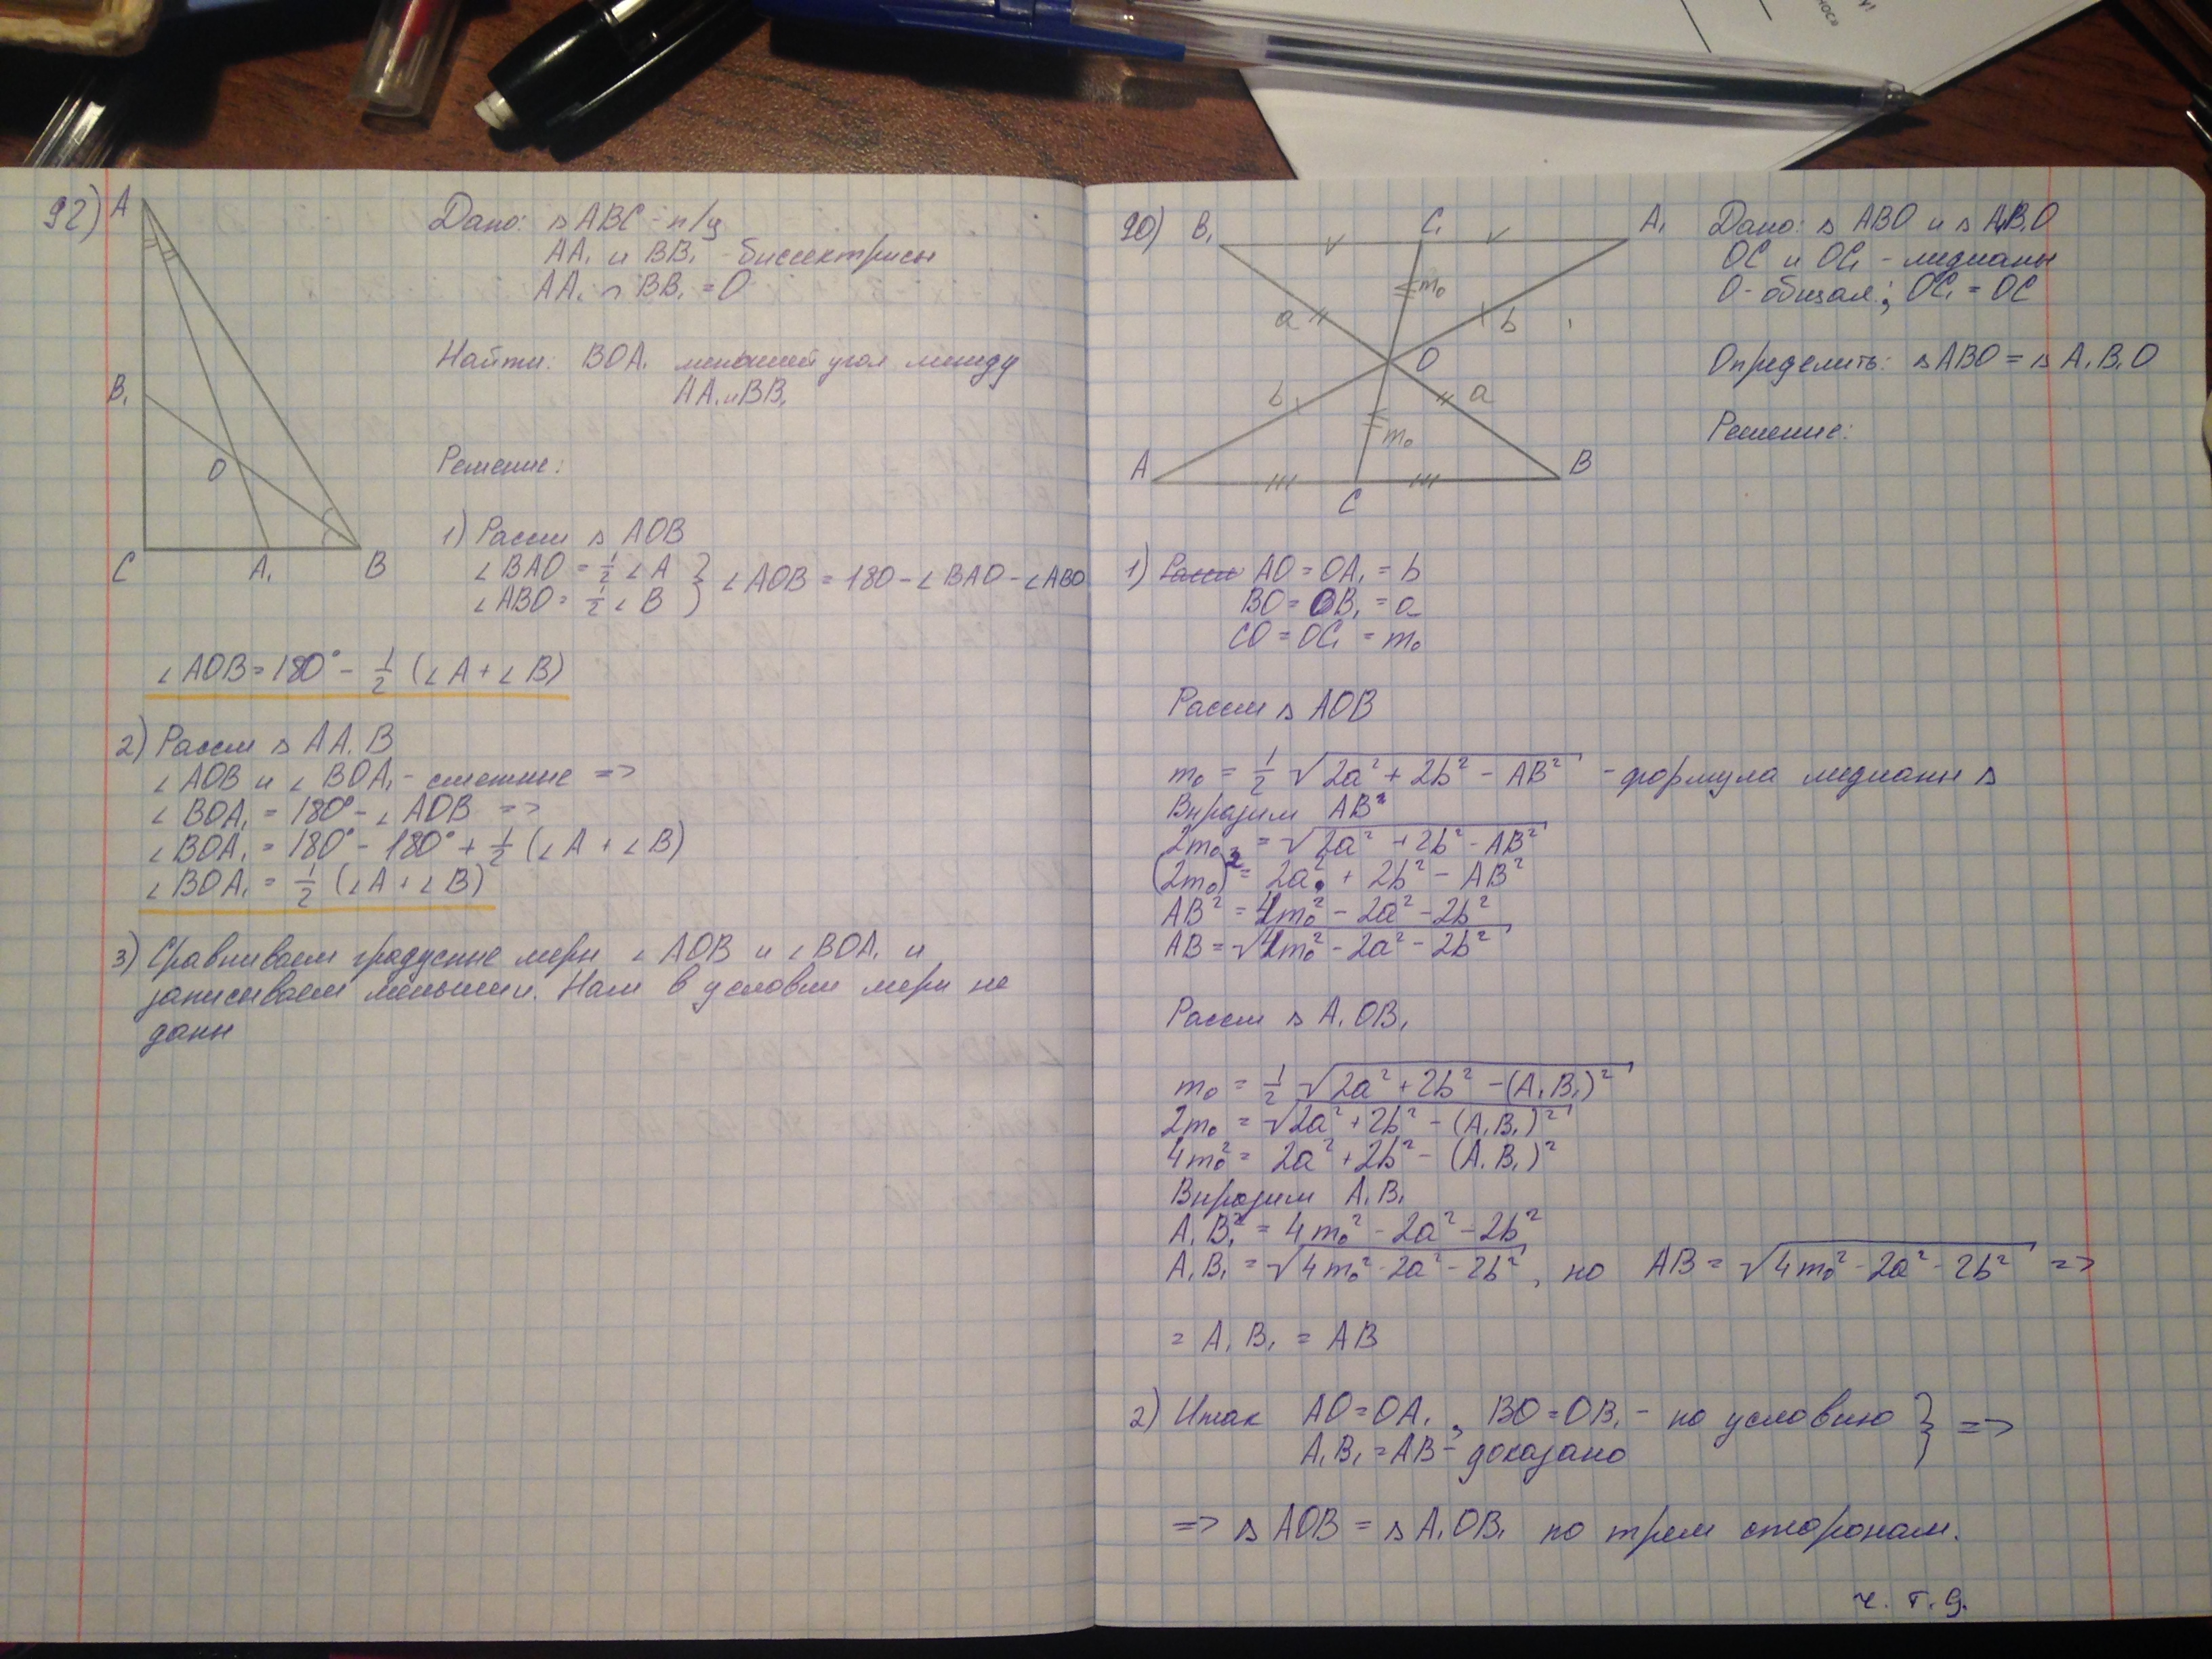 92)
A
B₁
O
C
A₁
B
Дано: △ ABC - п/у
AA₁ и BB₁ - биссектрисы
AA₁ ∩ BB₁ = O
Найти: BOA₁ меньший угол между
AA₁ и BB₁
Решение:
1) Рассм △ AOB
∠ BAO = 1/2 ∠ A
∠ ABO = 1/2 ∠ B
} ∠ AOB = 180 - ∠ BAO - ∠ ABO
∠ AOB = 180° - 1/2 (∠ A + ∠ B)
2) Рассм △ AA₁B
∠ AOB и ∠ BOA₁ - смежные =>
∠ BOA₁ = 180° - ∠ AOB =>
∠ BOA₁ = 180° - 180° + 1/2 (∠ A + ∠ B)
∠ BOA₁ = 1/2 (∠ A + ∠ B)
3) Сравниваем градусные меры ∠ AOB и ∠ BOA₁ и
записываем меньший. Нам в условии меры не
даны
90)
B₁ C₁ A₁
m₀
a b
O
b a
m₀
A C B
Дано: △ ABO и △ A₁B₁O
OC и OC₁ - медианы
O - общая; OC₁ = OC
Определить: △ ABO = △ A₁B₁O
Решение:
1) Рассм AO = OA₁ = b
BO = OB₁ = a
CO = OC₁ = m₀
Рассм △ AOB
m₀ = 1/2 √(2a² + 2b² - AB²) - формула медианы △
Выразим AB²
2m₀ = √(2a² + 2b² - AB²)
(2m₀)² = 2a² + 2b² - AB²
AB² = 4m₀² - 2a² - 2b²
AB = √(4m₀² - 2a² - 2b²)
Рассм △ A₁OB₁
m₀ = 1/2 √(2a² + 2b² - (A₁B₁)²)
2m₀ = √(2a² + 2b² - (A₁B₁)²)
4m₀² = 2a² + 2b² - (A₁B₁)²
Выразим A₁B₁
A₁B₁² = 4m₀² - 2a² - 2b²
A₁B₁ = √(4m₀² - 2a² - 2b²), но AB = √(4m₀² - 2a² - 2b²) =>
= A₁B₁ = AB
2) Итак AO = OA₁, BO = OB₁ - по условию } =>
A₁B₁ = AB - доказано
=> △ AOB = △ A₁OB₁ по трем сторонам.
ч. т. д.